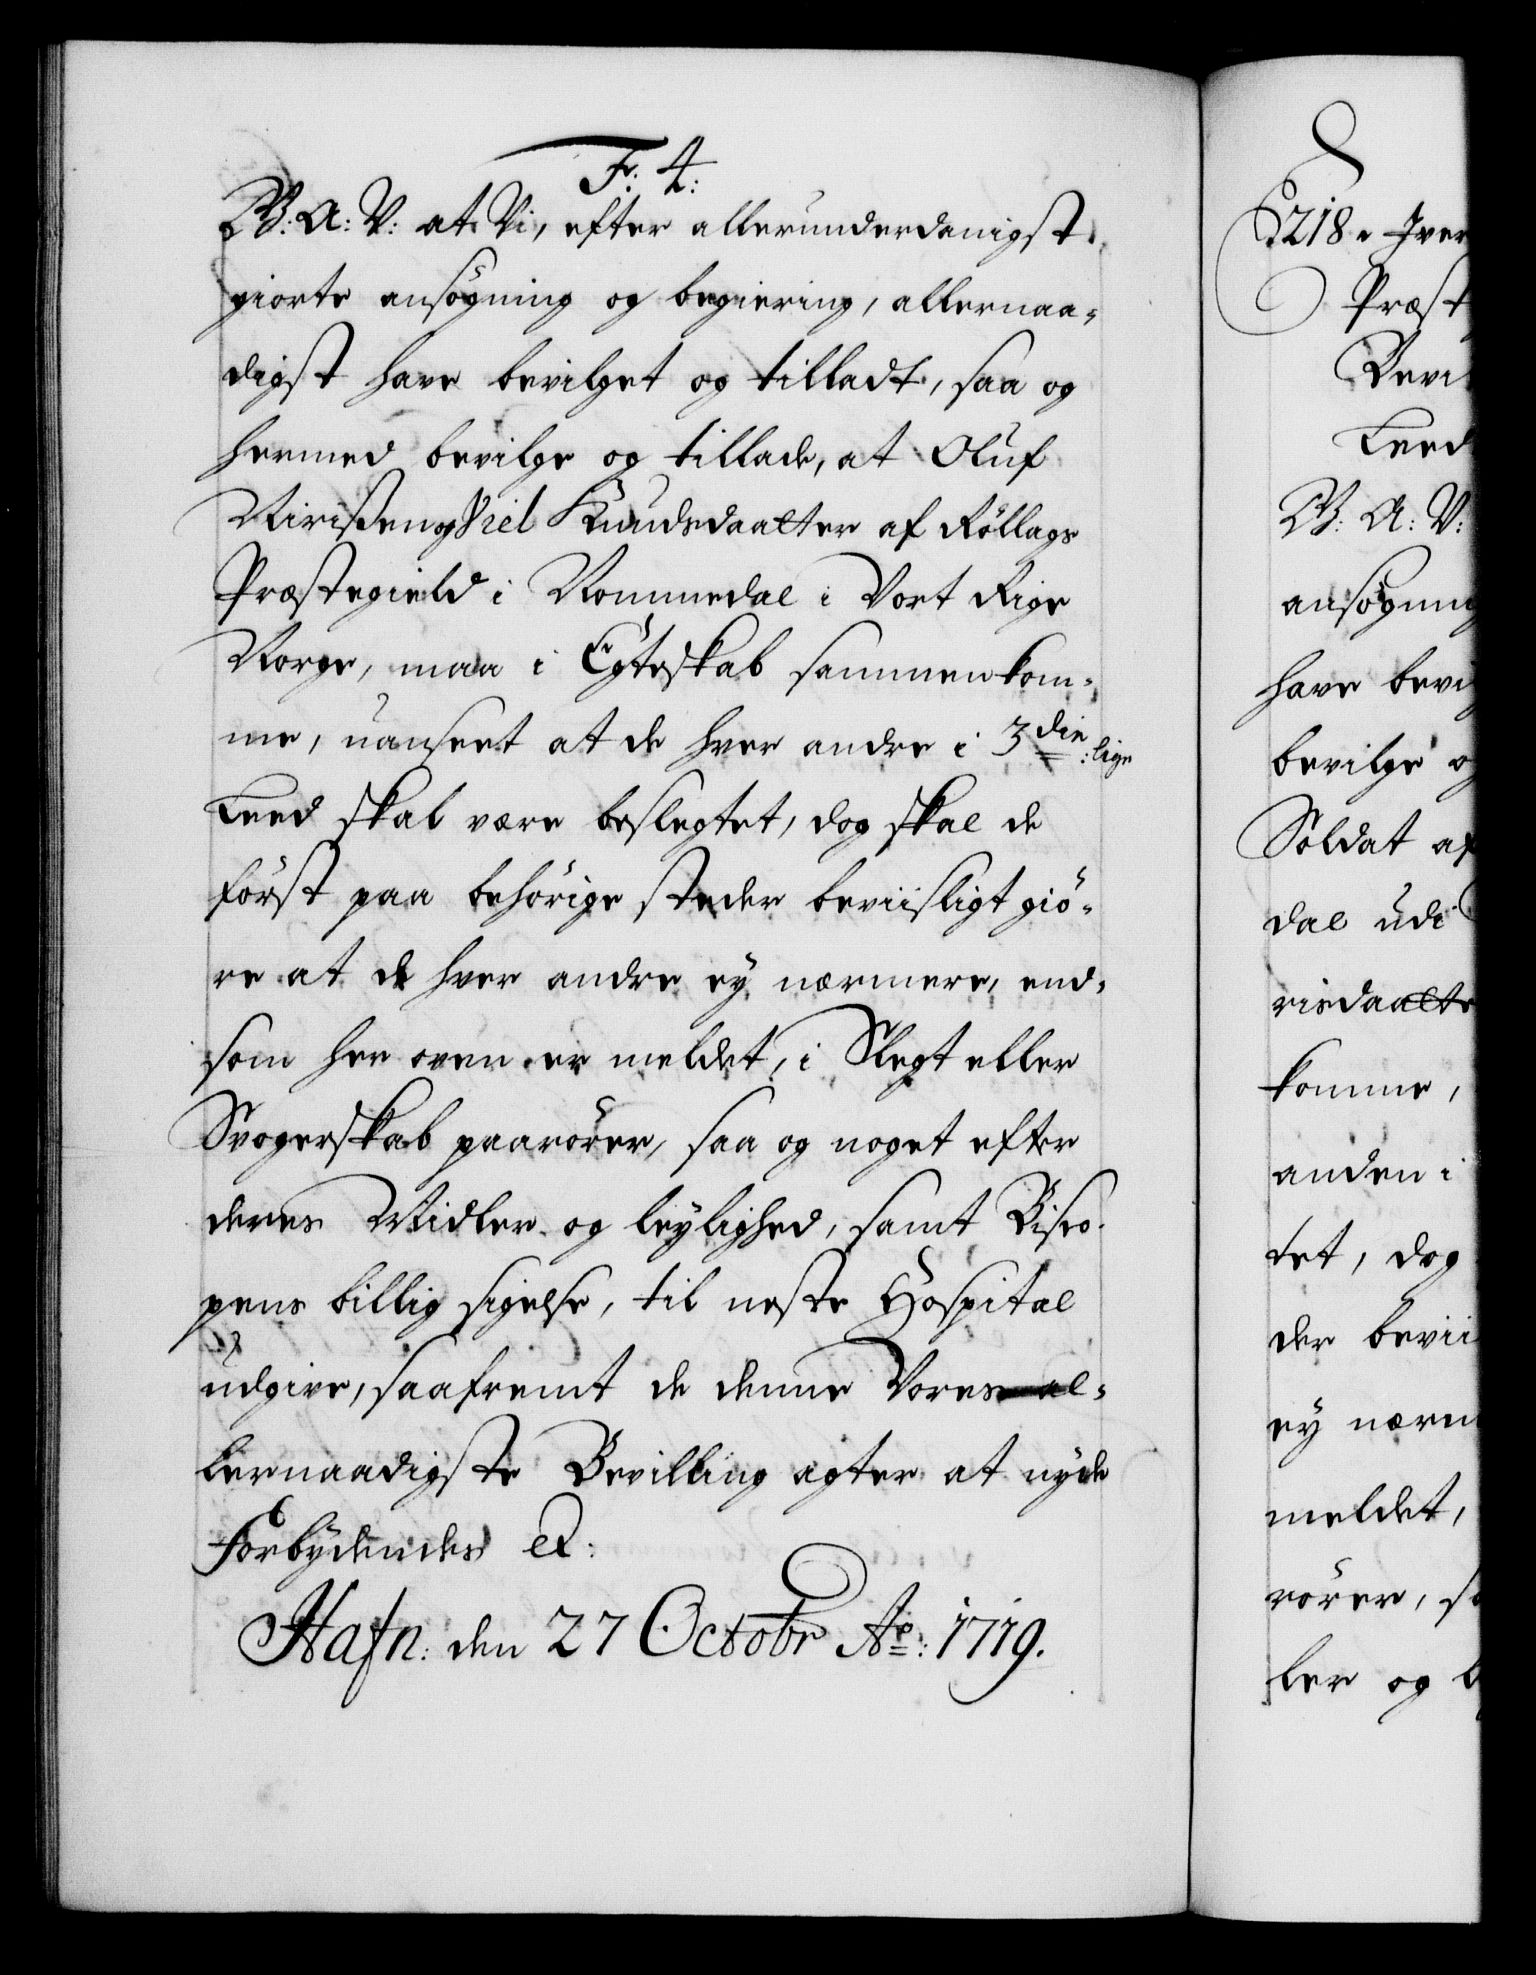 F: 4:
G: A: V: at Vi, efter allerunderdanigst
giorte ansøgning og begiering, allernaa-
digst have bevilget og tilladt, saa og
hermed bevilge og tillade, at Oluf
og Siel Knudsdaatter af Rollags
Præstegield i Nommedal i Vort Rige
Norge, maa i Egteskab sammenkom-
me, uanseet at de hver andre i 3die lige
Leed skal være beslegtet, dog skal de
först paa behörige steder beviisligt giö-
re at de hver andre ey nærmere, end-
som her oven er meldet, i Slegt eller
Svogerskab paarörer, saa og noget efter
deres Midler og leylighed, samt Bisco-
pens billig sigelse, til neste Hospital
udgive, saafremt de denne Vores al-
lernaadigste Bevilling agter at nyde
Forbydendes etc:
Hafn: den 27 Octobr Ao: 1719.
218. Iver
Præst
Bevil
Leed
G: A: V:
ansøgning
have bevil
bevilge og
Soldat af
dal udi
risdaatte
komme,
anden i
tet, dog
der bevii
ey nærm
meldet,
rörer, sa
ler og l